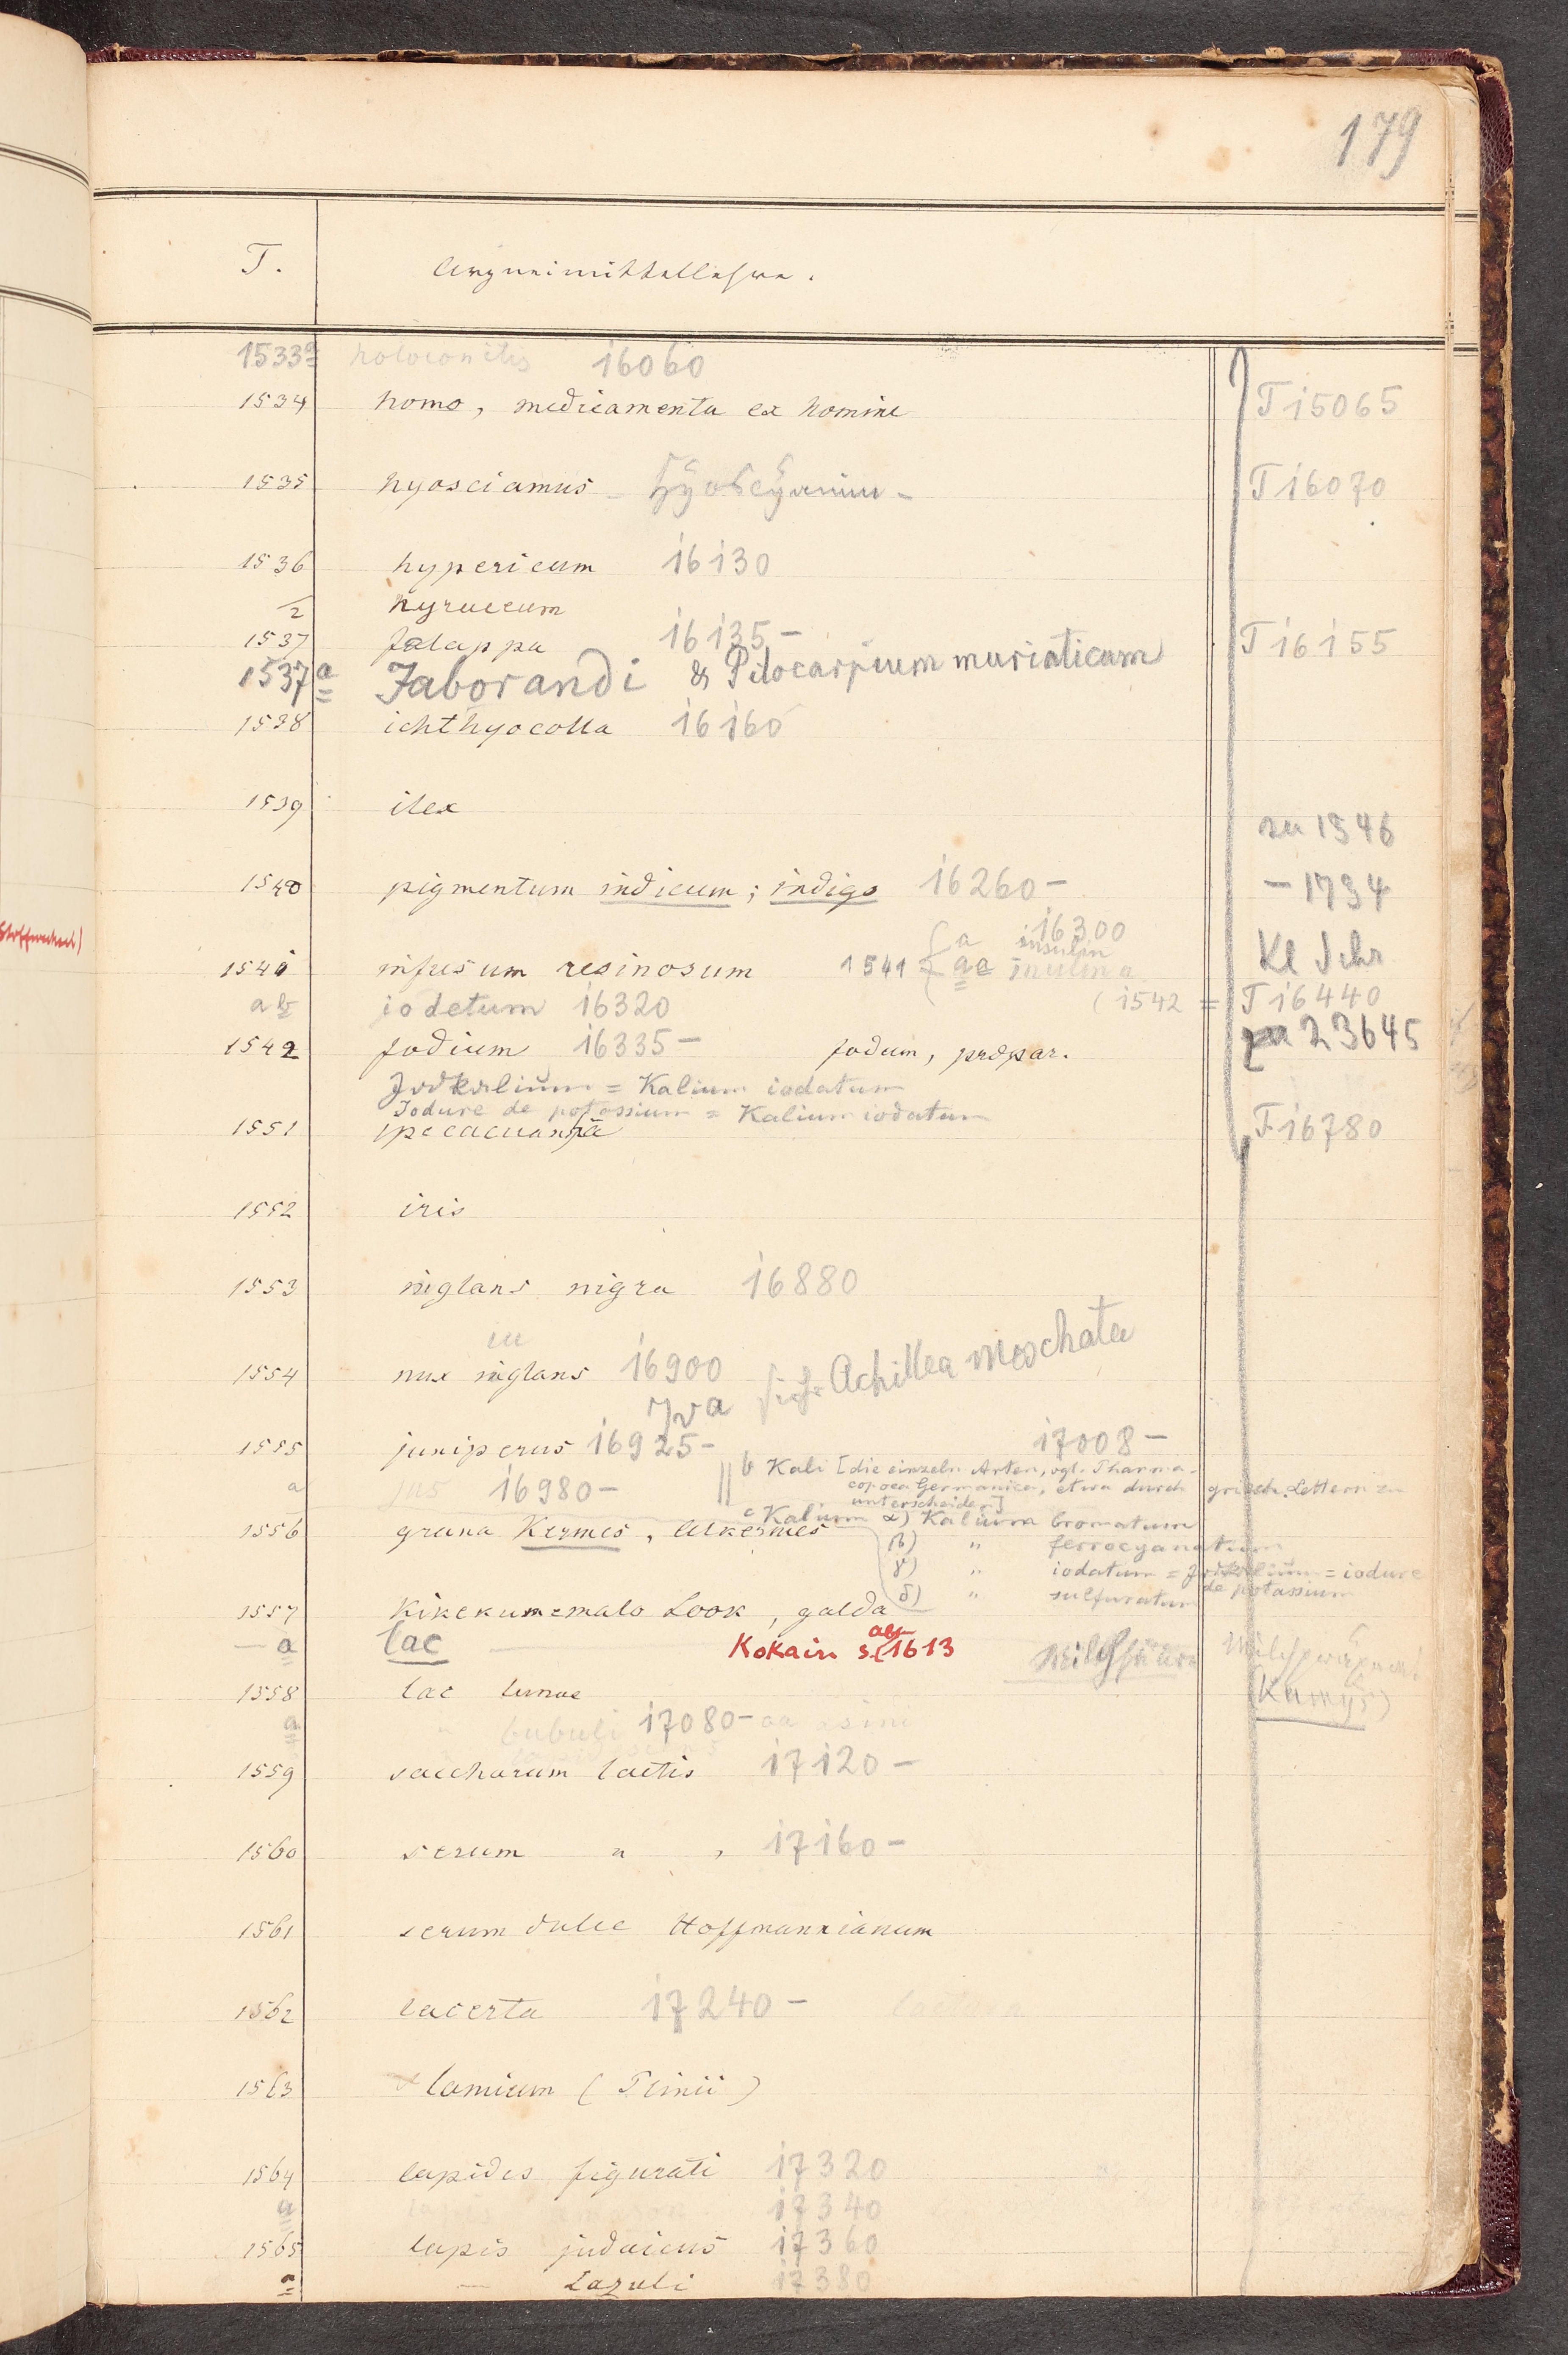 179
T. Arzneimittellehre.
1533a holoconitis 16060
1534 homo, medicamenta ex homine T 15065
1535 hyosciamus - Hyoscyamin - T 16070
1536 hypericum 16130
2 hyraceum
1537 jalappa 16135 - T 16155
1537a Jaborandi & Pilocarpium muriaticum
1538 ichthyocolla 16160
1539 ilex
zu 1546
1540 pigmentum indicum; indigo 16260 - - 1734
a 16300
insulin
1541 infusum resinosum 1541 inulina Kl Schr
ab iodetum 16320 (1542 = T 16440
1542 jodium 16335 - jodum, präpar. 23645
Jodkalium = Kalium iodatum
Iodure de potassium = Kalium iodatum
1551 ipecacuanha T 16780
1552 iris
1553 iuglans nigra 16880
1554 nux iuglans 16900
Iva siehe Achillea moschata
1555 juniperus 16925 - 17008 -
b Kali [die einzeln Arten, vgl. Pharma-
a jus 16980 - copoea Germanica, etwa durch griech. Lettern zu
unterscheiden]
c Kalium α) Kalium bromatum
1556 grana Kermes, Alkermes
β) " ferrocyanatum
γ) " iodatum = Jodkalium = iodure
de potassium
δ) " sulfuratum
1557 Kikekunemalo Look, galda
- a lac Kokain s. 1613
(Kumys)
1558 lac lunae
a " bubuli 17080 - asini
1559 saccharum lactis 17120 -
1560 serum " , 17160 -
1561 serum dulce Hoffmannianum
1562 lacerta 17240 -
1563 lamium (Plinii)
1564 lapides figurati 17320
a lapis 17340
1565 lapis judaicus 17360
a — Lazuli 17380